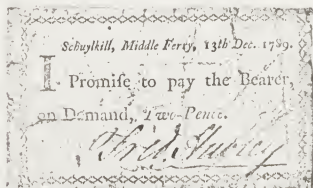 Schuylkill, Middle Ferry, 13th Dec. 1789.
I Promise to pay the Bearer,
on Demand, Two-Pence.